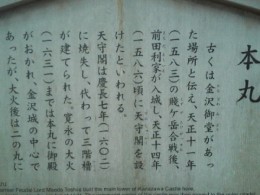 本丸
古くは金沢御堂があっ
た場所と伝え、天正十一年
(一五八三)の賤ヶ岳合戦後、
前田利家が入城し、天正十四年
(一五八六)頃に天守閣を設
けたといわれる。
天守閣は慶長七年(一六〇二)
に焼失し、代わって三階櫓
が建てられた。寛永の大火
(一六三一)までは本丸に御殿
がおかれ、金沢城の中心で
あったが、大火後は二の丸に
Maeda Toshiie built the main tower of Kanazawa Castle here.